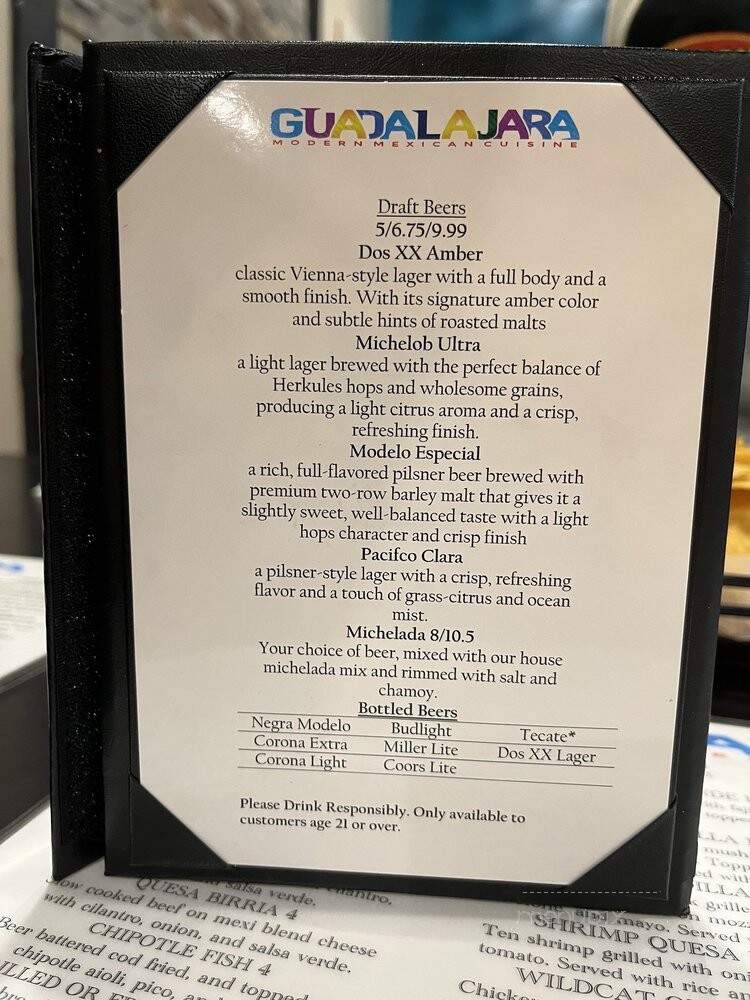 GUADALAJARA
MODERN MEXICAN CUISINE
Draft Beers
5/6.75/9.99
Dos XX Amber
classic Vienna-style lager with a full body and a
smooth finish. With its signature amber color
and subtle hints of roasted malts
Michelob Ultra
a light lager brewed with the perfect balance of
Herkules hops and wholesome grains,
producing a light citrus aroma and a crisp,
refreshing finish.
Modelo Especial
a rich, full-flavored pilsner beer brewed with
premium two-row barley malt that gives it a
slightly sweet, well-balanced taste with a light
hops character and crisp finish
Pacifco Clara
a pilsner-style lager with a crisp, refreshing
flavor and a touch of grass-citrus and ocean
mist.
Michelada 8/10.5
Your choice of beer, mixed with our house
michelada mix and rimmed with salt and
chamoy.
Bottled Beers
Negra Modelo Budlight Tecate*
Corona Extra Miller Lite Dos XX Lager
Corona Light Coors Lite
Please Drink Responsibly. Only available to
customers age 21 or over.
salsa verde.
cilantro,
QUESA BIRRIA 4
cooked beef on mexi blend cheese
with cilantro, onion, and salsa verde.
CHIPOTLE FISH 4
Beer battered cod fried, and topped
chipotle aioli, pico,
grille
mayo. Served
SHRIMP QUESA
Ten shrimp grilled with oni
tomato. Served with rice a
WILDCAT